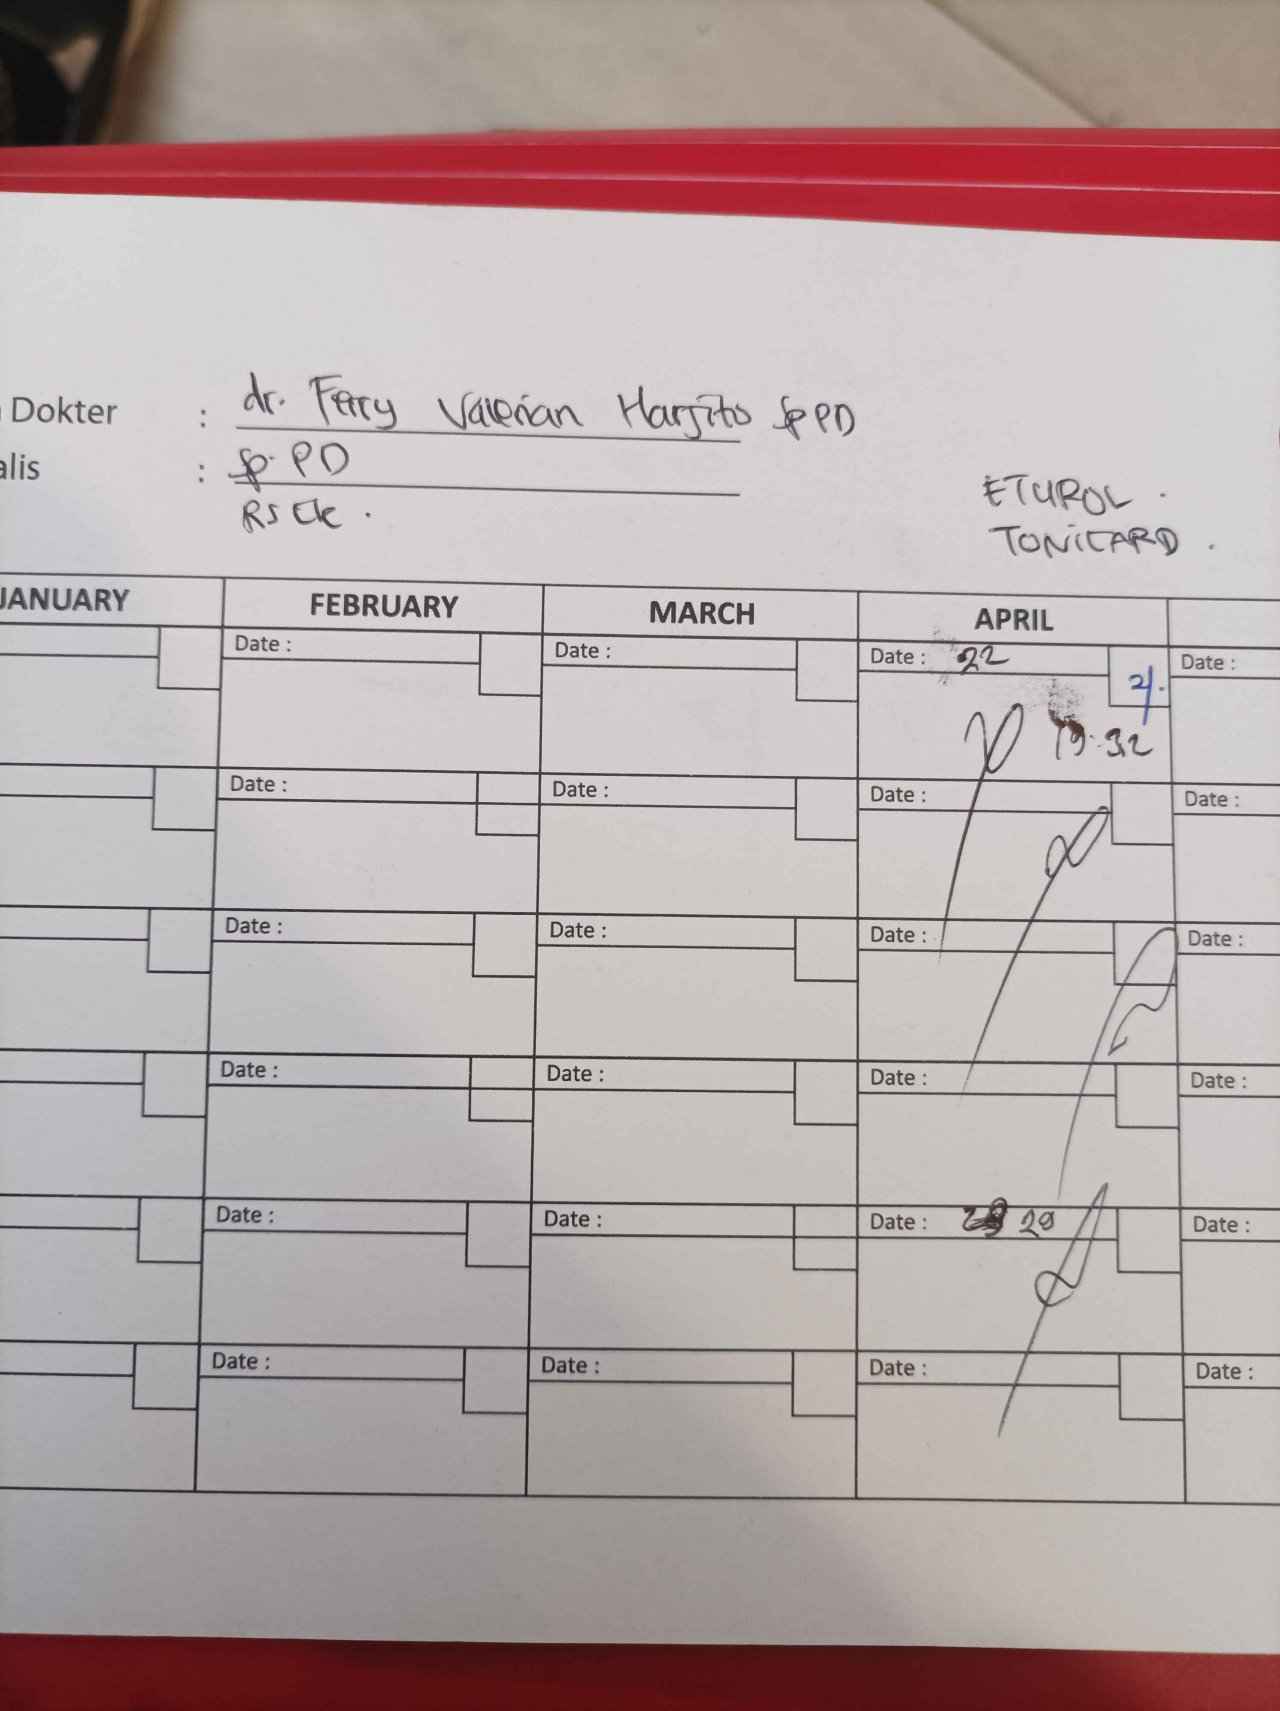 Dokter : dr. Ferry Valerian Harjito Sp PD
alis : Sp. PD
RS
ETUROL .
TONICARD .
JANUARY FEBRUARY MARCH APRIL
Date : Date : Date : 22 Date :
19.32
Date : Date : Date : Date :
Date : Date : Date : Date :
Date : Date : Date : Date :
Date : Date : Date : 29 Date :
Date : Date : Date : Date :